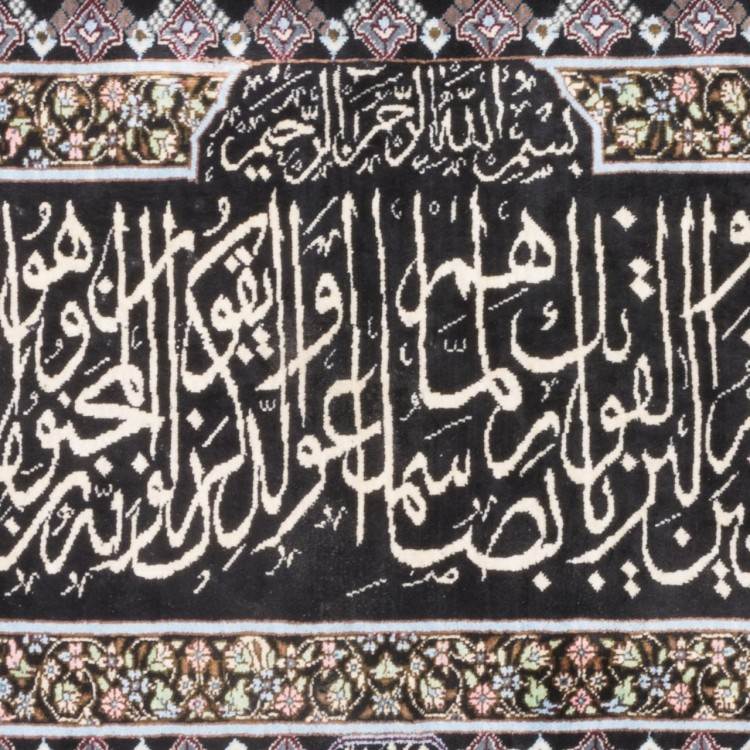 بسم الله الرحمن الرحيم
ليزلقونك بابصارهم لما سمعوا الذكر ويقولون انه لمجنون و هو